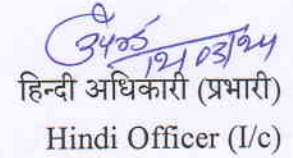 12/03/24
हिन्दी अधिकारी (प्रभारी)
Hindi Officer (I/c)